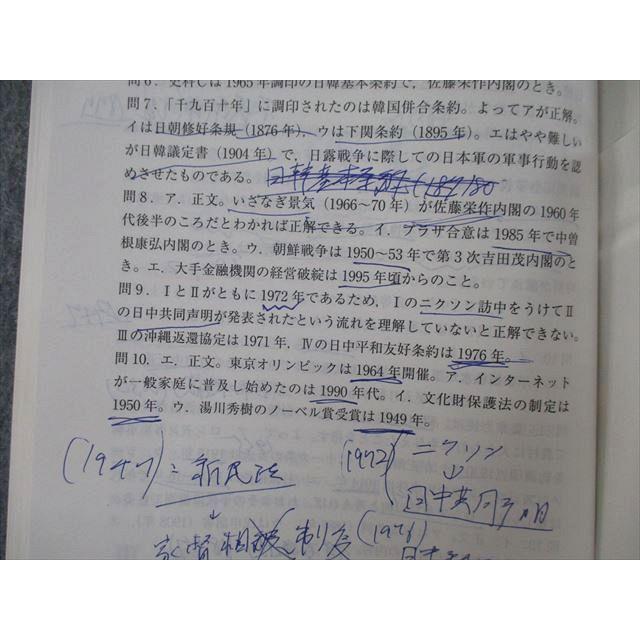 問6．史料Cは1965年調印の日韓基本条約で，佐藤栄作内閣のとき。
問7．「千九百十年」に調印されたのは韓国併合条約。よってアが正解。
イは日朝修好条規（1876年），ウは下関条約（1895年）。エはやや難しい
が日韓議定書（1904年）で，日露戦争に際しての日本軍の軍事行動を認
めさせたものである。
問8．ア．正文。いざなぎ景気（1966～70年）が佐藤栄作内閣の1960年
代後半のころだとわかれば正解できる。イ．プラザ合意は1985年で中曽
根康弘内閣のとき。ウ．朝鮮戦争は1950～53年で第3次吉田茂内閣のと
き。エ．大手金融機関の経営破綻は1995年頃からのこと。
問9．ⅠとⅡがともに1972年であるため，Ⅰのニクソン訪中をうけてⅡ
の日中共同声明が発表されたという流れを理解していないと正解できない。
Ⅲの沖縄返還協定は1971年，Ⅳの日中平和友好条約は1976年。
問10．エ．正文。東京オリンピックは1964年開催。ア．インターネット
が一般家庭に普及し始めたのは1990年代。イ．文化財保護法の制定は
1950年。ウ．湯川秀樹のノーベル賞受賞は1949年。
(1947) 新民法
(1972) ニクソン
↓
日中共同声明
↓
家督相続制度
(1976)